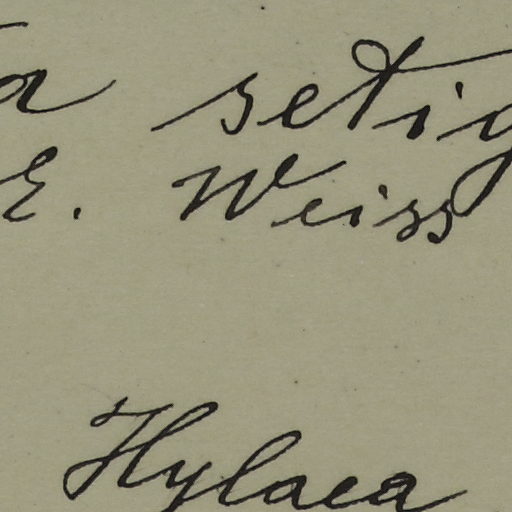 a setig
E. Weiss
Hylaea